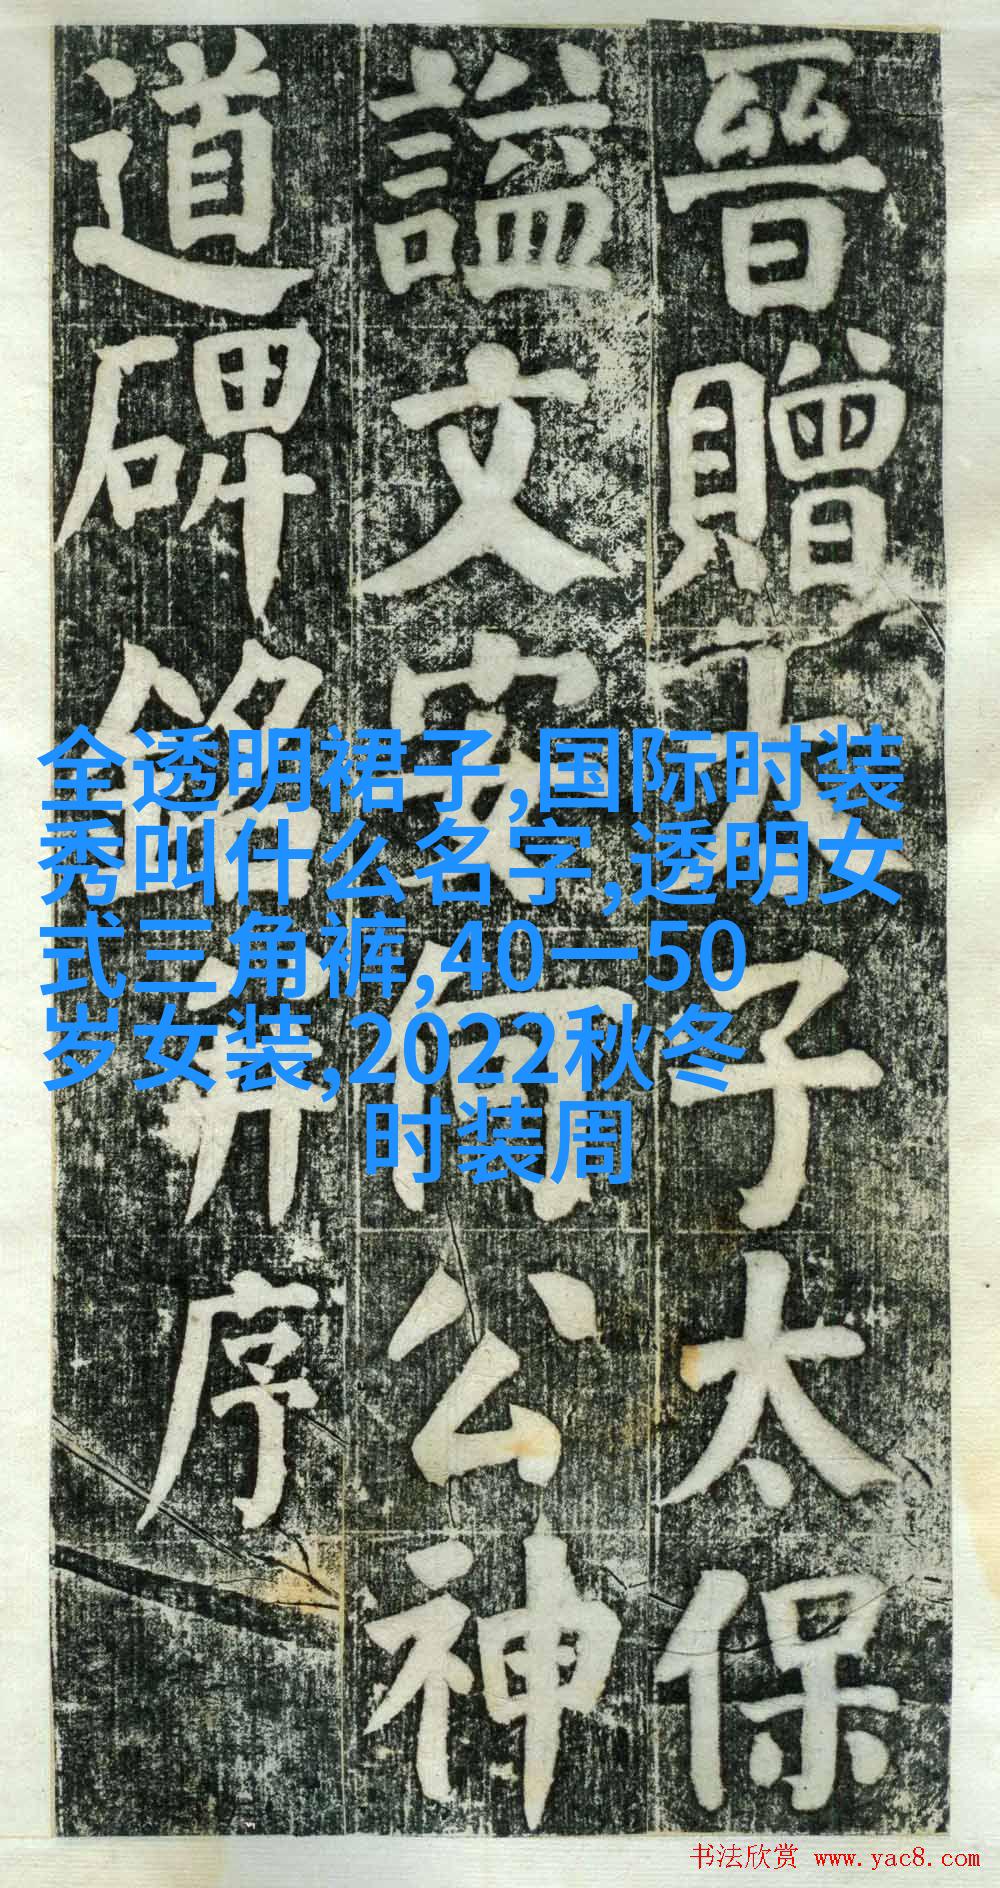 晉贈太子太保
謚文安何公神
道碑銘并序
全透明裙子,国际时装
秀叫什么名字,透明女
式三角裤,40一50
岁女装,2022秋冬
时装周
书法欣赏 www.yac8.com